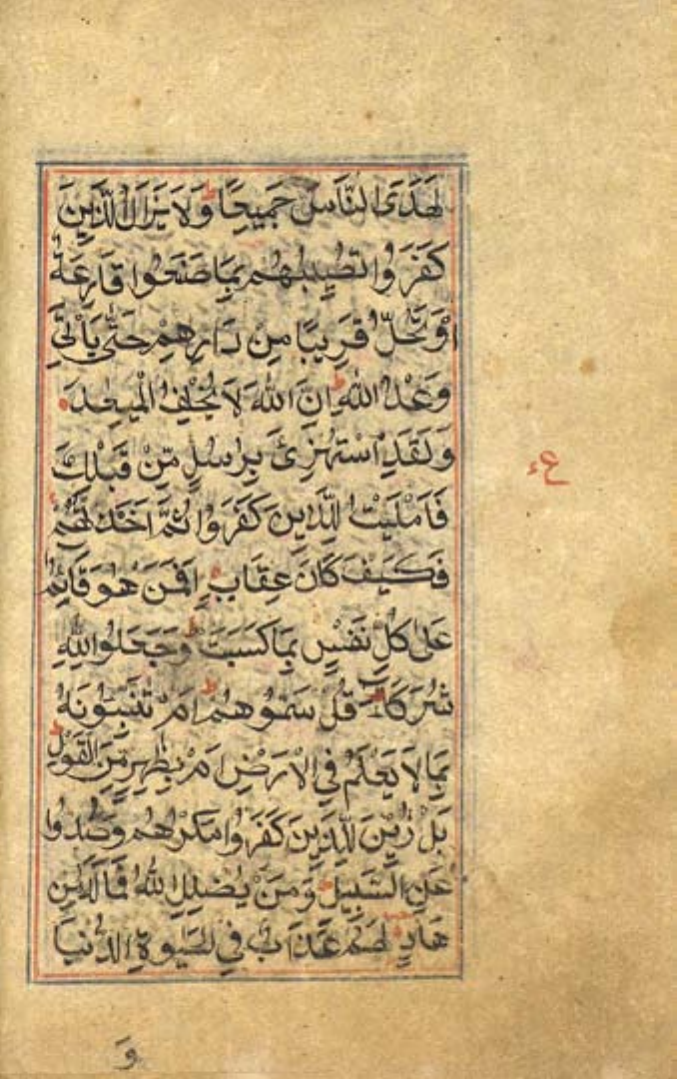 لَهَدَى النَّاسَ جَمِيعًا وَلَا يَزَالُ الَّذِينَ
كَفَرُوا تُصِيبُهُم بِمَا صَنَعُوا قَارِعَةٌ
اَوْ تَحُلُّ قَرِيبًا مِن دَارِهِمْ حَتَّى يَاْتِيَ
وَعْدُ اللهِ اِنَّ اللهَ لَا يُخْلِفُ الْمِيعٰدَ
وَلَقَدِ اسْتُهْزِئَ بِرُسُلٍ مِّنْ قَبْلِكَ
فَاَمْلَيْتُ لِلَّذِينَ كَفَرُوا ثُمَّ اَخَذْتُهُمْ
ع
فَكَيْفَ كَانَ عِقَابِ اَفَمَنْ هُوَ قَائِمٌ
عَلىٰ كُلِّ نَفْسٍ بِمَا كَسَبَتْ وَجَعَلُوا لِلّٰهِ
شُرَكَاءَ قُلْ سَمُّوهُمْ اَمْ تُنَبِّئُونَهُ
بِمَا لَا يَعْلَمُ فِي الْاَرْضِ اَمْ بِظَاهِرٍ مِّنَ الْقَوْلِ
بَلْ زُيِّنَ لِلَّذِينَ كَفَرُوا مَكْرُهُمْ وَصُدُّوا
عَنِ السَّبِيلِ وَمَنْ يُضْلِلِ اللهُ فَمَا لَهُ مِنْ
هَادٍ لَهُمْ عَذَابٌ فِي الْحَيٰوةِ الدُّنْيَا
وَ